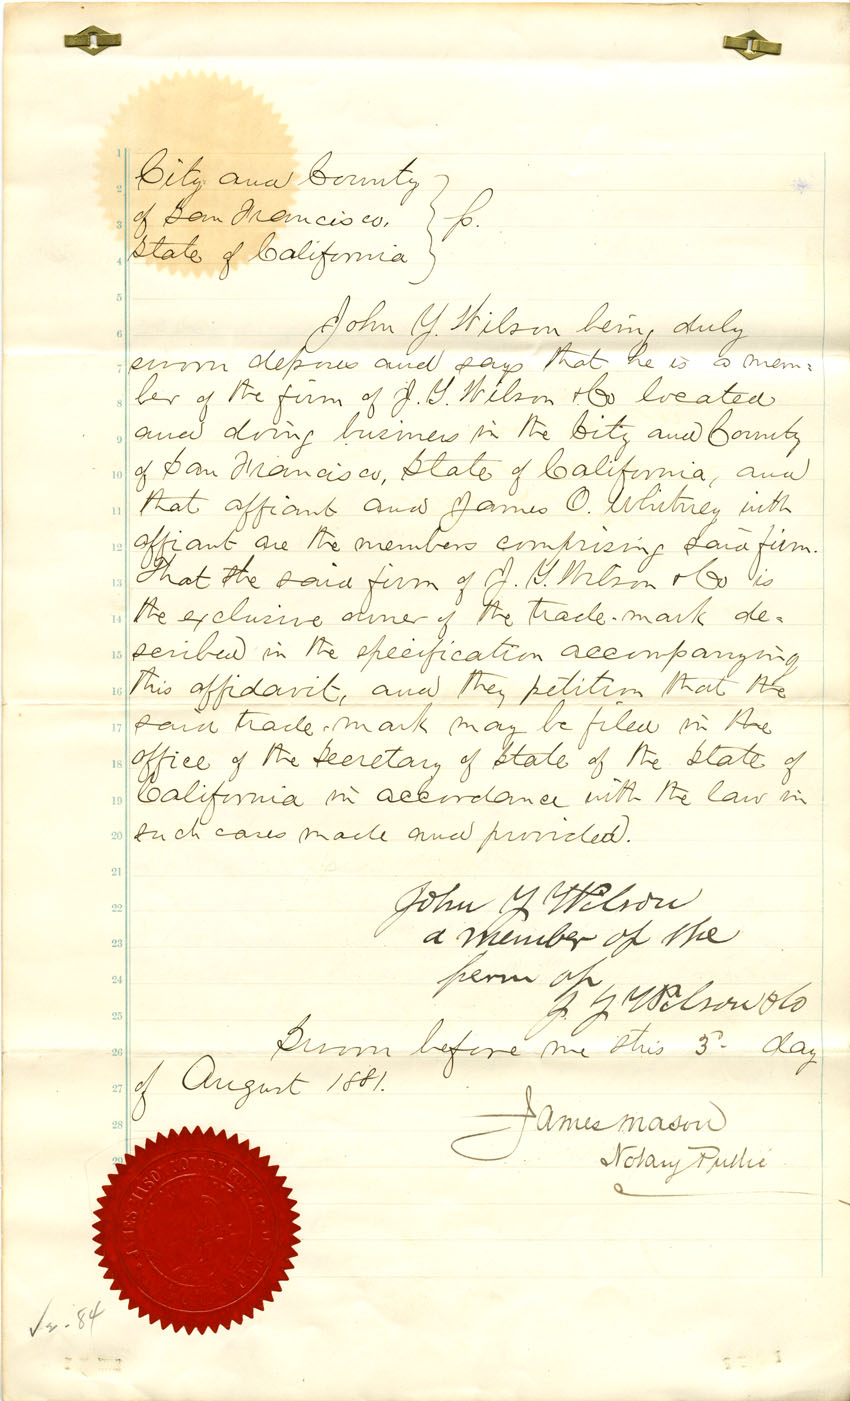 City and County
of San Francisco,
State of California
John Y. Wilson being duly
sworn deposes and says that he is a mem=
ber of the firm of J. Y. Wilson & Co located
and doing business in the City and County
of San Francisco, State of California, and
that affiant and James O. Whitney with
affiant are the members comprising said firm.
That the said firm of J. Y. Wilson & Co is
the exclusive owner of the trade-mark de=
scribed in the specification accompanying
this affidavit, and they petition that the
said trade-mark may be filed in the
office of the Secretary of State of the State of
California in accordance with the law in
such cases made and provided.
John Y Wilson
a member of the
firm of
J Y Wilson & Co
Sworn before me this 5- day
of August 1881.
James Mason
Notary Public
1
2
3
4
5
6
7
8
9
10
11
12
13
14
15
16
17
18
19
20
21
22
23
24
25
26
27
28
29
84